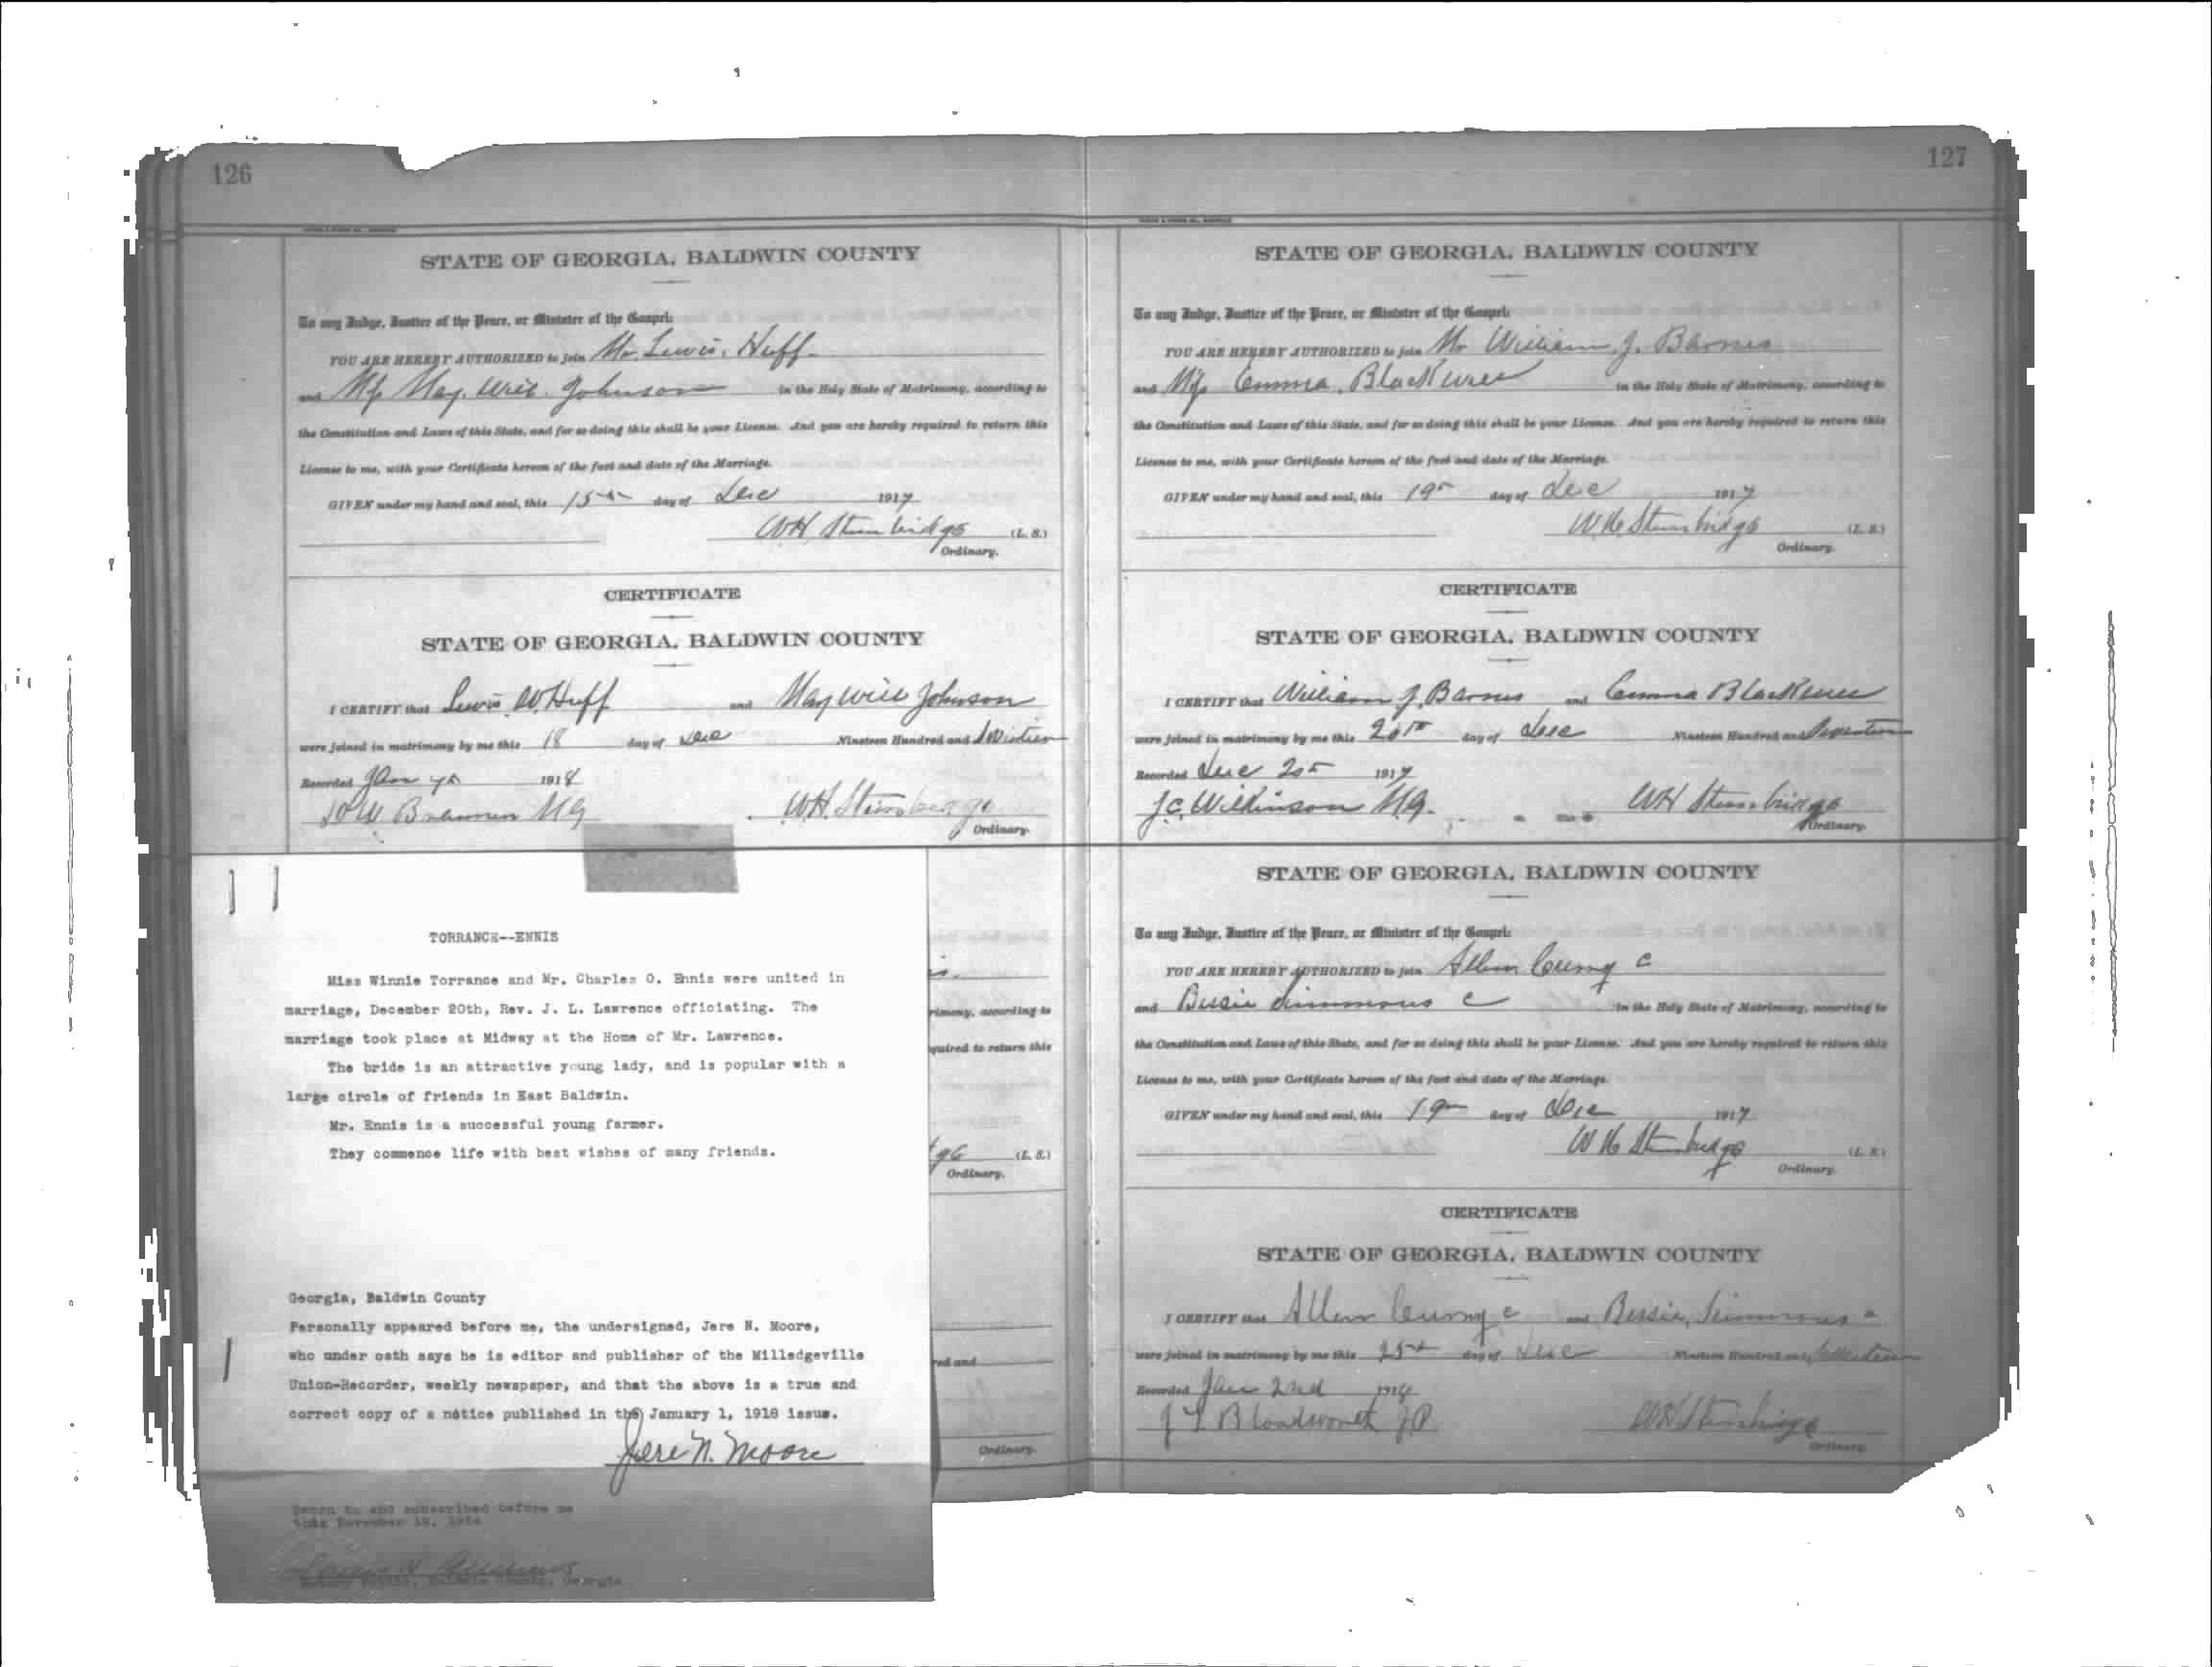 126
STATE OF GEORGIA, BALDWIN COUNTY
To any Judge, Justice of the Peace, or Minister of the Gospel:
YOU ARE HEREBY AUTHORIZED to join Mr. Lewis. Huff
and Miss May. Will. Johnson in the Holy State of Matrimony, according to
the Constitution and Laws of this State, and for so doing this shall be your License. And you are hereby required to return this
License to me, with your Certificate hereon of the fact and date of the Marriage.
GIVEN under my hand and seal, this 15th day of Dec 1917
WH Stembridge (L. S.)
Ordinary.
CERTIFICATE
STATE OF GEORGIA, BALDWIN COUNTY
I CERTIFY that Lewis W. Huff and May Will Johnson
were joined in matrimony by me this 18 day of Dec Nineteen Hundred and
Recorded Jan 7th 1918
MG WH Stembridge
Ordinary.
TORRANCE--ENNIS
Miss Winnie Torrance and Mr. Charles O. Ennis were united in
marriage, December 20th, Rev. J. L. Lawrence officiating. The
marriage took place at Midway at the Home of Mr. Lawrence.
The bride is an attractive young lady, and is popular with a
large circle of friends in East Baldwin.
Mr. Ennis is a successful young farmer.
They commence life with best wishes of many friends.
Georgia, Baldwin County
Personally appeared before me, the undersigned, Jere N. Moore,
who under oath says he is editor and publisher of the Milledgeville
Union-Recorder, weekly newspaper, and that the above is a true and
correct copy of a notice published in the January 1, 1918 issue.
Jere N. Moore
Sworn to and subscribed before me
this November
Notary Public, Baldwin County, Georgia
rimony, according to
quired to return this
ge (L. S.)
Ordinary.
ed and
Ordinary.
127
STATE OF GEORGIA, BALDWIN COUNTY
To any Judge, Justice of the Peace, or Minister of the Gospel:
YOU ARE HEREBY AUTHORIZED to join Mr William J. Barnes
and Miss Emma Blackwell in the Holy State of Matrimony, according to
the Constitution and Laws of this State, and for so doing this shall be your License. And you are hereby required to return this
License to me, with your Certificate hereon of the fact and date of the Marriage.
GIVEN under my hand and seal, this 19th day of Dec 1917
WH Stembridge (L. S.)
Ordinary.
CERTIFICATE
STATE OF GEORGIA, BALDWIN COUNTY
I CERTIFY that William J. Barnes and Emma Blackwell
were joined in matrimony by me this 20th day of Dec Nineteen Hundred and Seventeen
Recorded Dec 20th 1917
J.C. Wilkinson MG. WH Stembridge
Ordinary.
STATE OF GEORGIA, BALDWIN COUNTY
To any Judge, Justice of the Peace, or Minister of the Gospel:
YOU ARE HEREBY AUTHORIZED to join Allen C
and Bessie Simmons C in the Holy State of Matrimony, according to
the Constitution and Laws of this State, and for so doing this shall be your License. And you are hereby required to return this
License to me, with your Certificate hereon of the fact and date of the Marriage.
GIVEN under my hand and seal, this 19th day of Dec 1917
WH Stembridge (L. S.)
Ordinary.
CERTIFICATE
STATE OF GEORGIA, BALDWIN COUNTY
I CERTIFY that Allen c and Bessie Simmons c
were joined in matrimony by me this 25th day of Dec Nineteen Hundred and Seventeen
Recorded Jan 2nd 1918
Bloodworth JP WH Stembridge
Ordinary.